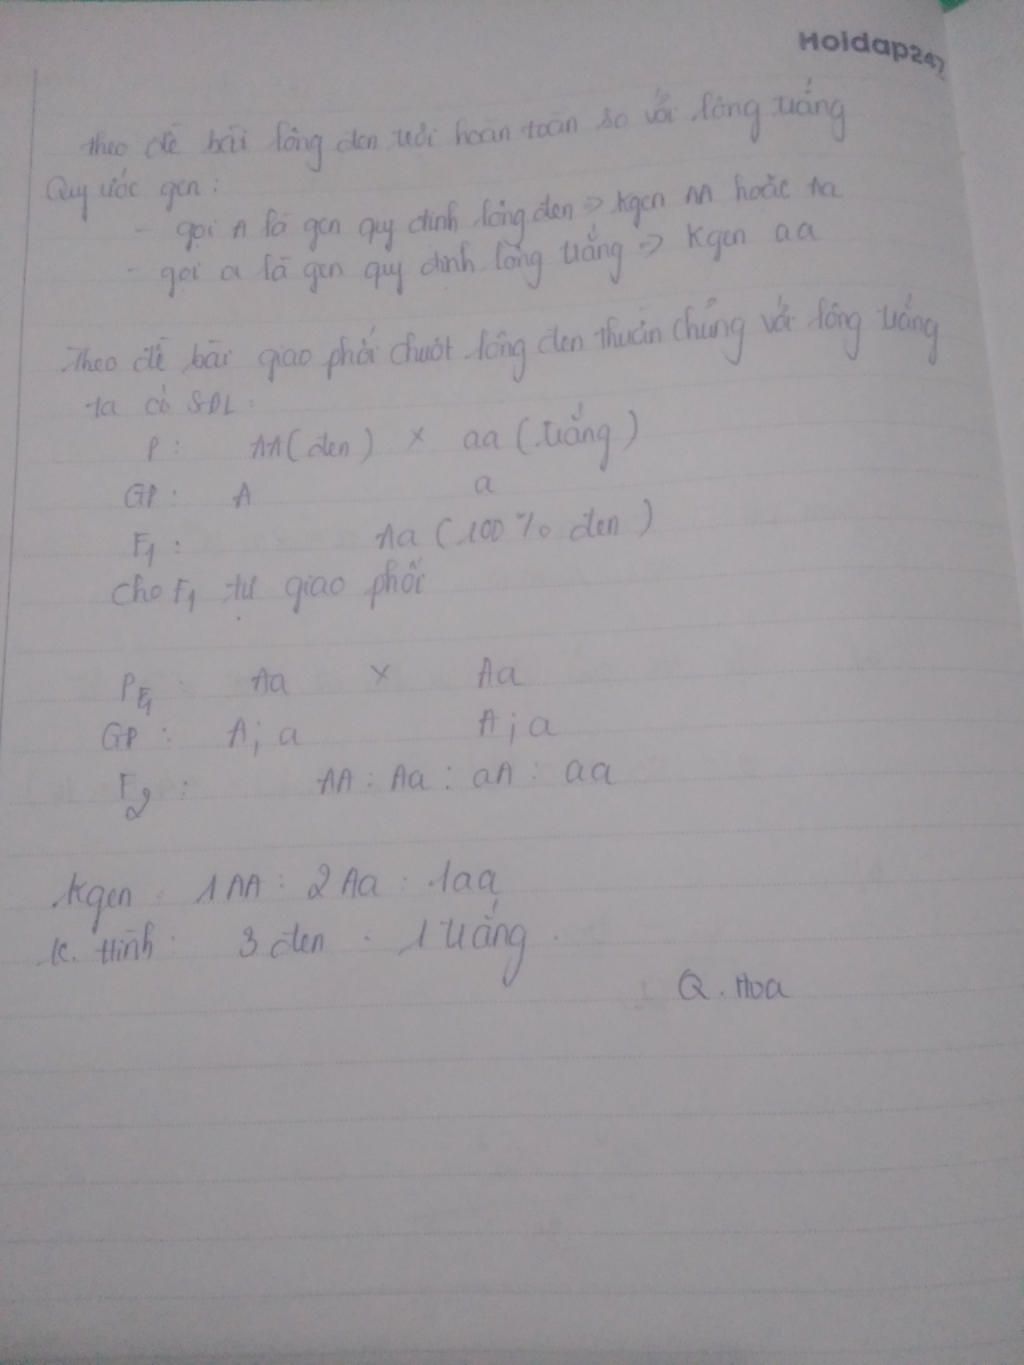 Hoidap247
theo đề bài lông đen trội hoàn toàn so với lông trắng
Quy ước gen:
- gọi A là gen quy định lông đen => kgen AA hoặc Aa
- gọi a là gen quy định lông trắng => kgen aa
Theo đề bài giao phối chuột lông đen thuần chủng với lông trắng
ta có SĐL:
P: AA (đen) × aa (trắng)
GP: A a
F1: Aa (100% đen)
cho F1 tự giao phối
PF1: Aa × Aa
GP: A; a A; a
F2: AA : Aa : aA : aa
kgen: 1AA : 2Aa : 1aa
K. Hình: 3 đen : 1 trắng.
Q. Hoa